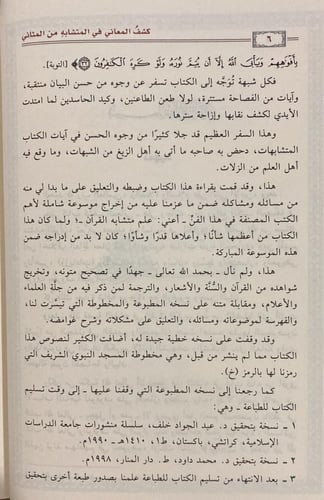 ٦
كشف المعاني في المتشابه من المثاني
بِأَفْوَاهِهِمْ وَيَأْبَى اللَّهُ إِلَّا أَن يُتِمَّ نُورَهُ وَلَوْ كَرِهَ الْكَافِرُونَ ﴿٣٢﴾ [التوبة].
فكل شبهة تُوَجَّه إلى الكتاب تسفر عن وجوه من حسن البيان منتقبة،
وآيات من الفصاحة مستترة، لولا طعن الطاعنين، وكيد الحاسدين لما امتدت
الأيدي لكشف نقابها وإزاحة سترها.
وهذا السفر العظيم قد جلا كثيرًا من وجوه الحسن في آيات الكتاب
المتشابهات، دحض به صاحبه ما أتى به أهل الزيغ من الشبهات، وما وقع فيه
أهل العلم من الزلات.
هذا، وقد قمت بقراءة هذا الكتاب وضبطه والتعليق على ما بدا لي منه
من مسائله ومشاكله ضمن ما عزمنا عليه من إخراج موسوعة شاملة لأهم
الكتب المصنفة في هذا الفنّ ـ أعني: علم متشابه القرآن ـ؛ ولما كان هذا
الكتاب من أعظمها شأنًا؛ وأعلاها قدرًا وشأوًا؛ كان لا بد من إدراجه ضمن
هذه الموسوعة المباركة.
هذا، ولم نأل ـ بحمد الله تعالى ـ جهدًا في تصحيح متونه، وتخريج
شواهده من القرآن والسُّنَّة والأشعار، والترجمة لمن ذكر فيه من جلّة العلماء
والأعلام، ومقابلة متنه على نسخه المطبوعة والمخطوطة التي تيسَّرت لنا،
والفهرسة لموضوعاته ومسائله، والتعليق على مشكلاته وشرح غوامضه.
وقد وقفت على نسخة خطية جيدة له، أضافت الكثير لنصوص هذا
الكتاب مما لم ينشر من قبل، وهي مخطوطة المسجد النبوي الشريف التي
رمزنا لها بالرمز (خ).
كما رجعنا إلى نسخه المطبوعة التي وقفنا عليها ـ إلى وقت تسليم
الكتاب للطباعة ـ وهي:
١ ـ نسخة بتحقيق د. عبد الجواد خلف، سلسلة منشورات جامعة الدراسات
الإسلامية، كراتشي، باكستان، ط١، ١٤١٠هـ ـ ١٩٩٠م.
٢ ـ نسخة بتحقيق د. محمد داود، ط. دار المنار، ١٩٩٨م.
٣ ـ بعد الانتهاء من تسليم الكتاب للطباعة علمنا بصدور طبعة أخرى بتحقيق